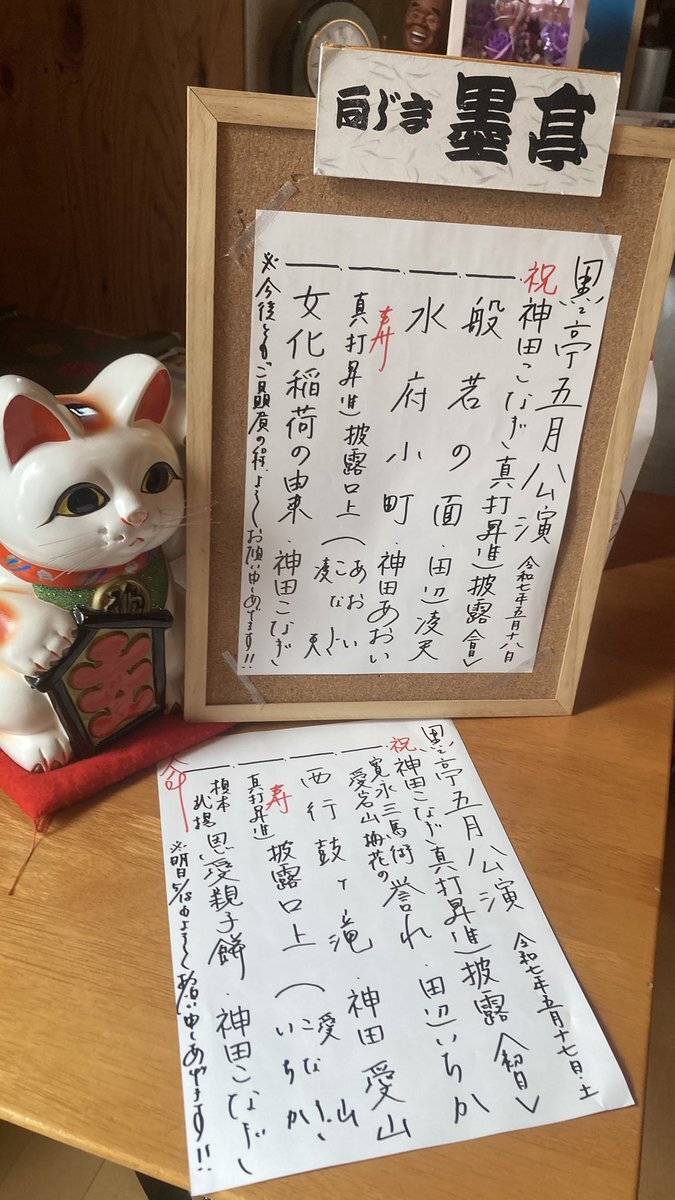 向じま 墨亭
墨亭五月公演 令和七年五月十八日
祝 神田こなぎ真打昇進披露会
一、般若の面・田辺凌天
一、水府小町・神田あおい
寿
一、真打昇進披露口上（あおい こなぎ 凌天
一、女化稲荷の由来・神田こなぎ
※今後ともご贔屓の程、よろしくお願い申しあげます!!
墨亭五月公演 令和七年五月十七日・土
祝 神田こなぎ真打昇進披露 初日
一、寛永三馬術 愛宕山梅花の誉れ・田辺いちか
一、西行鼓ヶ滝・神田愛山
寿
一、真打昇進披露口上（愛山 こなぎ いちか
一、恩愛親子餅・神田こなぎ
※明日5/18もよろしくお願い申しあげます!!
寿